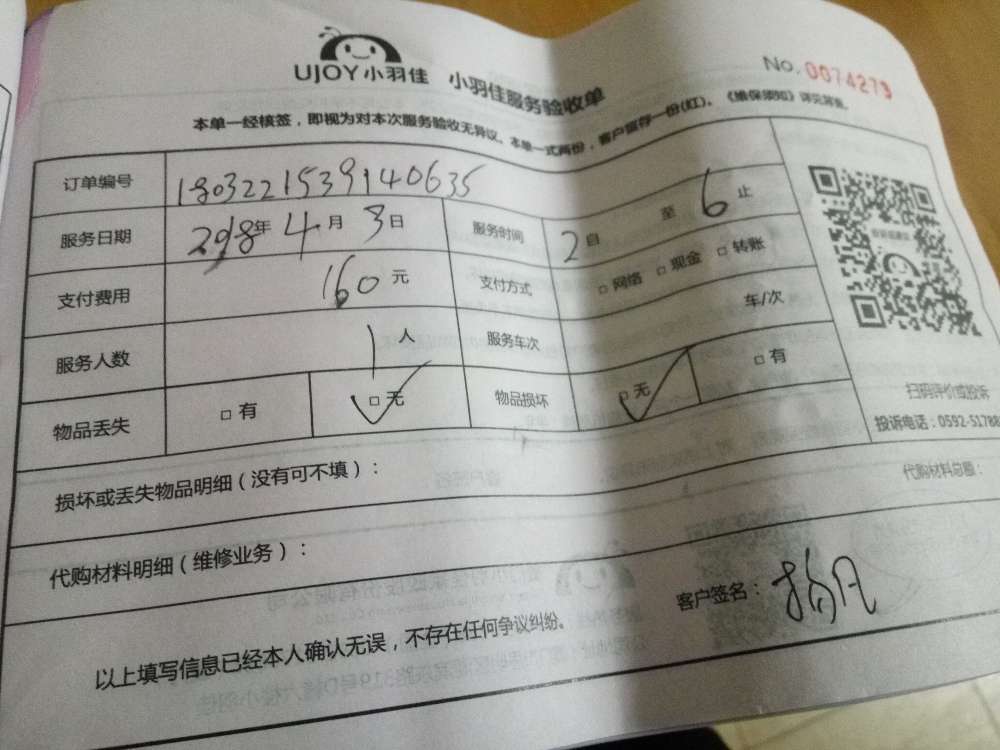 UJOY小羽佳 小羽佳服务验收单 No. 0074279
本单一经核签，即视为对本次服务验收无异议。本单一式两份，客户留存一份(红)。《维保须知》详见背面。
订单编号 1803221539140635
服务日期 2018年4月3日 服务时间 2自 至 6止
支付费用 160元 支付方式 □ 网络 □ 现金 □ 转账
服务人数 1人 服务车次 车/次
物品丢失 □ 有 □ 无 物品损坏 □ 无 □ 有
扫码评价或投诉
投诉电话：0592-51788
损坏或丢失物品明细（没有可不填）：
代购材料总额：
代购材料明细（维修业务）：
客户签名：杨凡
以上填写信息已经本人确认无误，不存在任何争议纠纷。